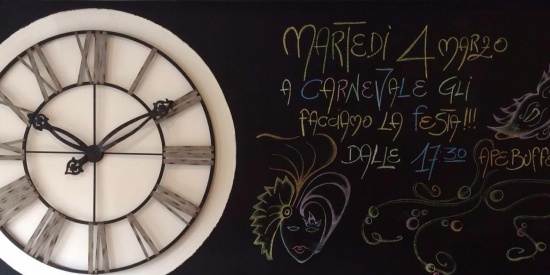 MARTEDI 4 MARZO
A CARNEVALE GLI
FACCIAMO LA FESTA!!!
DALLE 17:30 APEBUFF